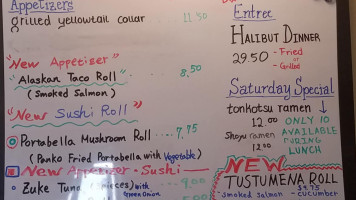 Appetizers
grilled yellowtail collar 11.50
"New Appetiser"
"Alaskan Taco Roll" 8.50
(Smoked Salmon)
"New Sushi Roll"
Portabella Mushroom Roll 7.75
(Panko Fried Portabella with Vegetable)
New Appetizer - Sushi
Zuke Tuna ( pieces) with 9.00
Green Onion
Entree
HALIBUT DINNER
29.50 - Fried
or
Grilled
Saturday Special
tonkotsu ramen
12.00 ONLY 10
AVAILABLE
Shoyu ramen DURING
12.00 LUNCH
NEW
TUSTUMENA ROLL
$9.75
Smoked Salmon - CUCUMBER